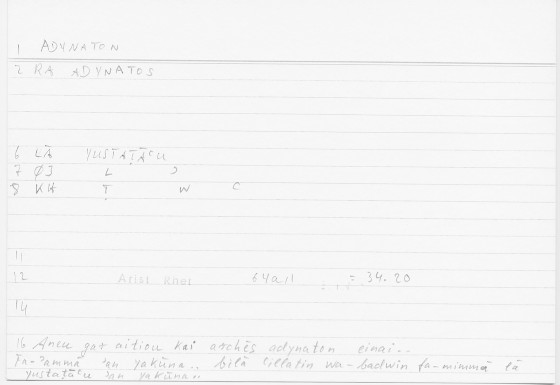 1 ADYNATON
2 RA ADYNATOS
6 LĀ YUSTAṬĀʿU
7 ØJ L J
8 KH Ṭ W C
11
12 Arist Rhet 64a11 = 34.20
14
16 Aneu gar aitiou kai archēs adynaton einai..
fa-ʾammā ʾan yakūna.. bilā ʿillatin wa-badwin fa-mimmā lā
yustaṭāʿu ʾan yakūna..